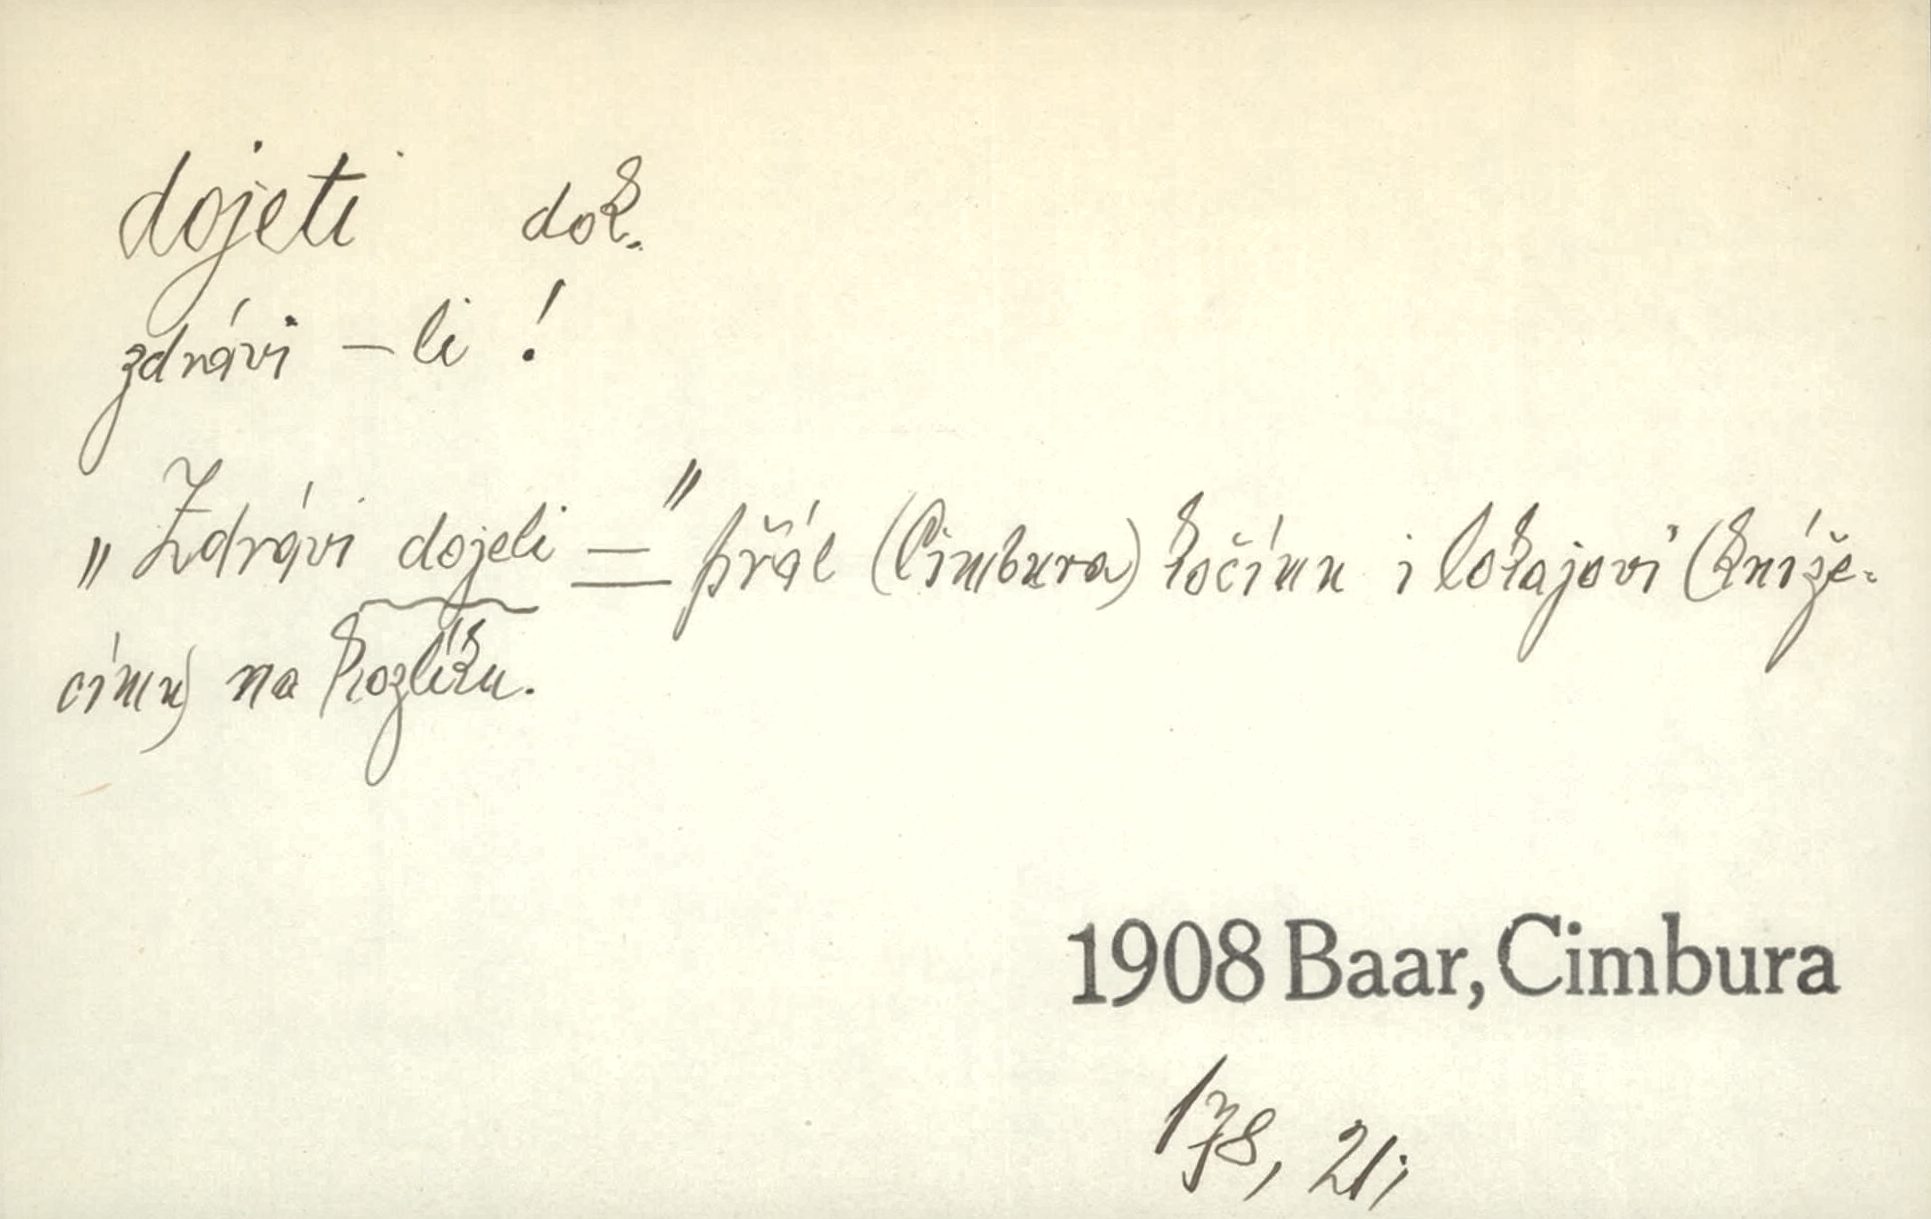 dojeti dok.
zdrávi – li !
„Zdrávi dojeli =" přál (Cimbura) kočímu i lokajovi (kníže-
címu) na kozlíku.
1908 Baar, Cimbura
178, 21;